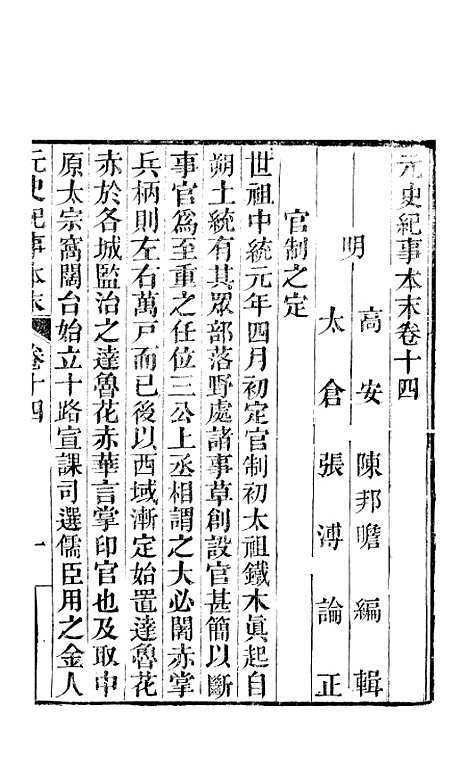 元史紀事本末卷十四
明
高安陳邦瞻編輯
太倉張溥論正
官制之定
世祖中統元年四月初定官制初太祖鐵木眞起自
朔土統有其眾部落野處諸事草創設官甚簡以斷
事官爲至重之任位三公上丞相謂之大必闍赤掌
兵柄則左右萬戸而已後以西域漸定始置達魯花
赤於各城監治之達魯花赤華言掌印官也及取中
原太宗窩闊台始立十路宣課司選儒臣用之金人
元史紀事本末
卷十四
一